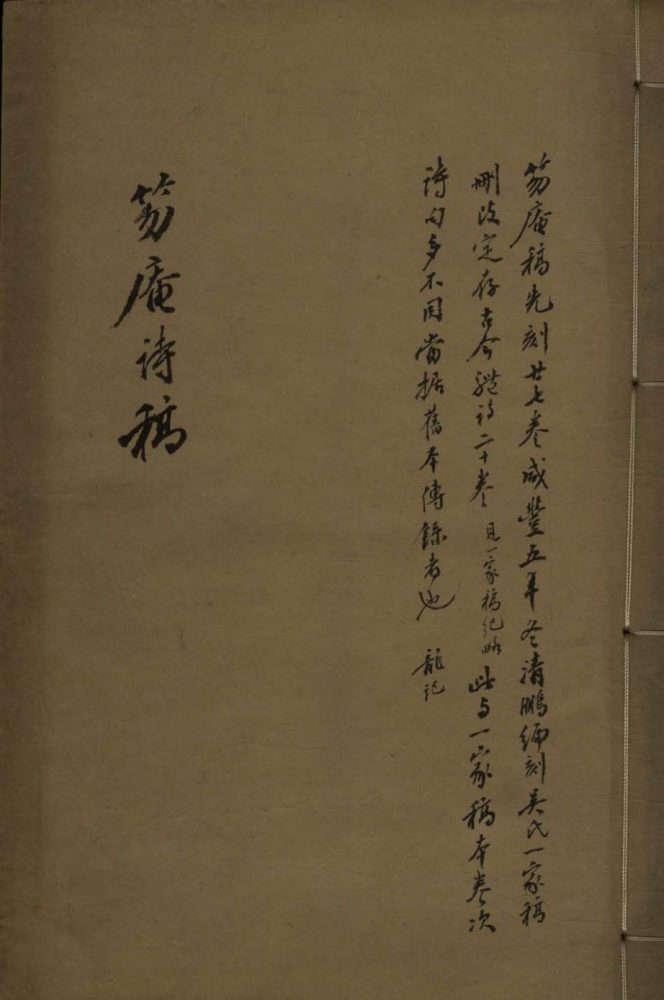 笏庵稿先刻廿七卷咸豐五年冬清鵬編刻吳氏一家稿
刪改定存古今體詩二十卷見一家稿紀略此与一家稿本卷次
詩句多不同當据舊本傳錄者也 龍记
笏庵诗稿